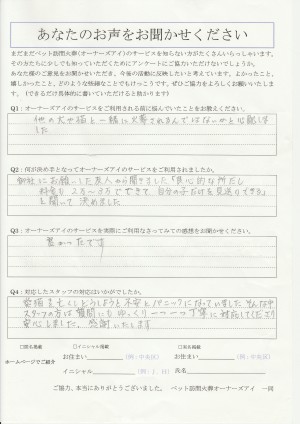 あなたのお声をお聞かせください
まだまだペット訪問火葬(オーナーズアイ)のサービスを知らない方がたくさんいらっしゃいます。
その方たちに少しでも知っていただくためにアンケートにご協力いただけないでしょうか。
あなた様のご意見をお聞かせいただき、今後の活動に反映したいと考えています。よかったこと、
嬉しかったこと、どのような些細なことでもけっこうです。ぜひご協力をよろしくお願いいたしま
す。(できるだけ具体的に書いていただけると助かります)
Q1:オーナーズアイのサービスをご利用される前に悩んでいたことをお教えください。
他の犬や猫と一緒に火葬されるんではないかと心配しま
した
Q2:何が決め手となってオーナーズアイのサービスをご利用されましたか。
御社にお願いした友人から聞きました「良心的な所だし
料金も 自分の子だけを見送りできる」
と聞いて決めました
Q3:オーナーズアイのサービスを実際にご利用なさってみての感想をお聞かせください。
良かったです
Q4:対応したスタッフの対応はいかがでしたか。
愛猫を亡くしどうしようと不安とパニックになっていました そんな中
スタッフの方は質問にもゆっくり一つ一つ丁寧に対応してくださり
安心しました。感謝いたします
□匿名掲載 □イニシャル掲載 □実名掲載
ホームページでご紹介
お住まい (例:中央区) お住まい (例:中央区)
イニシャル (例:J.H) 氏名
ご協力、本当にありがとうございました。 ペット訪問火葬オーナーズアイ 一同